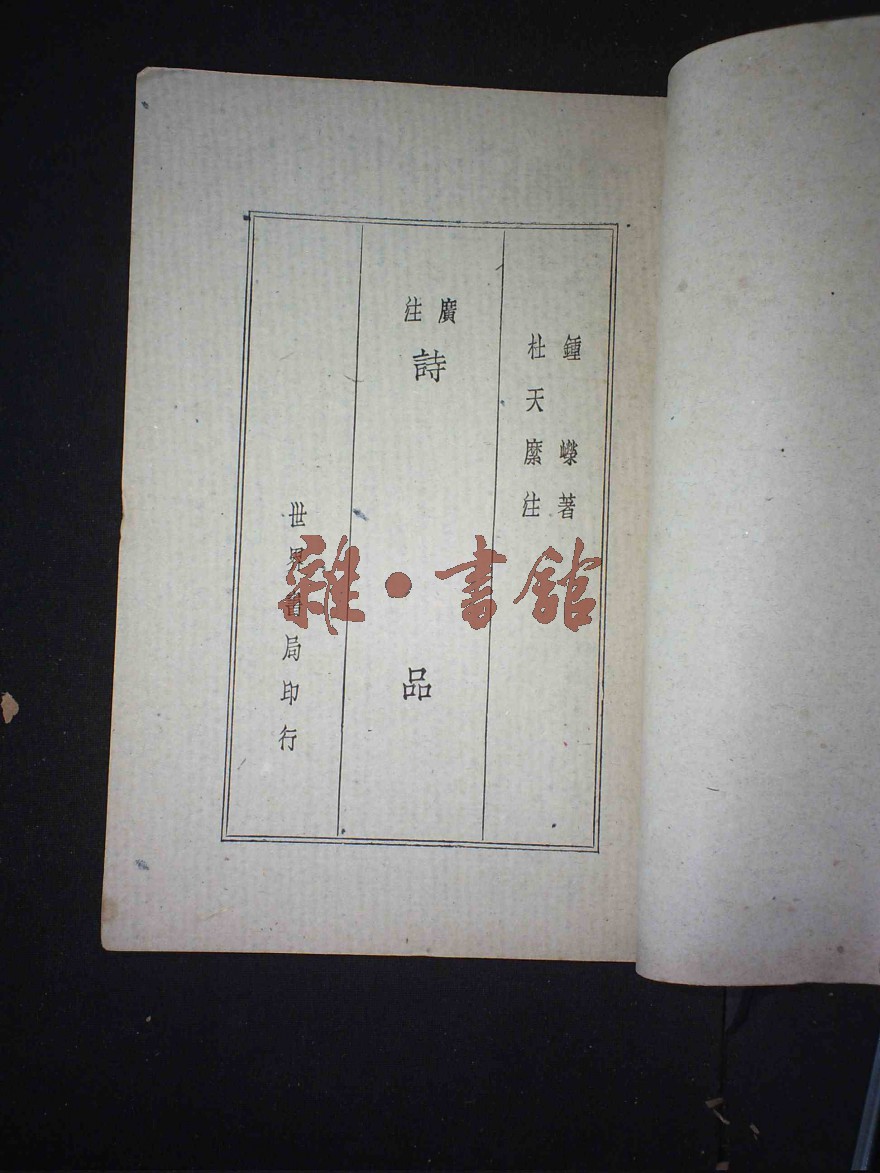 鍾嶸著
杜天縻注
廣注
詩品
世界書局印行
雜·書館